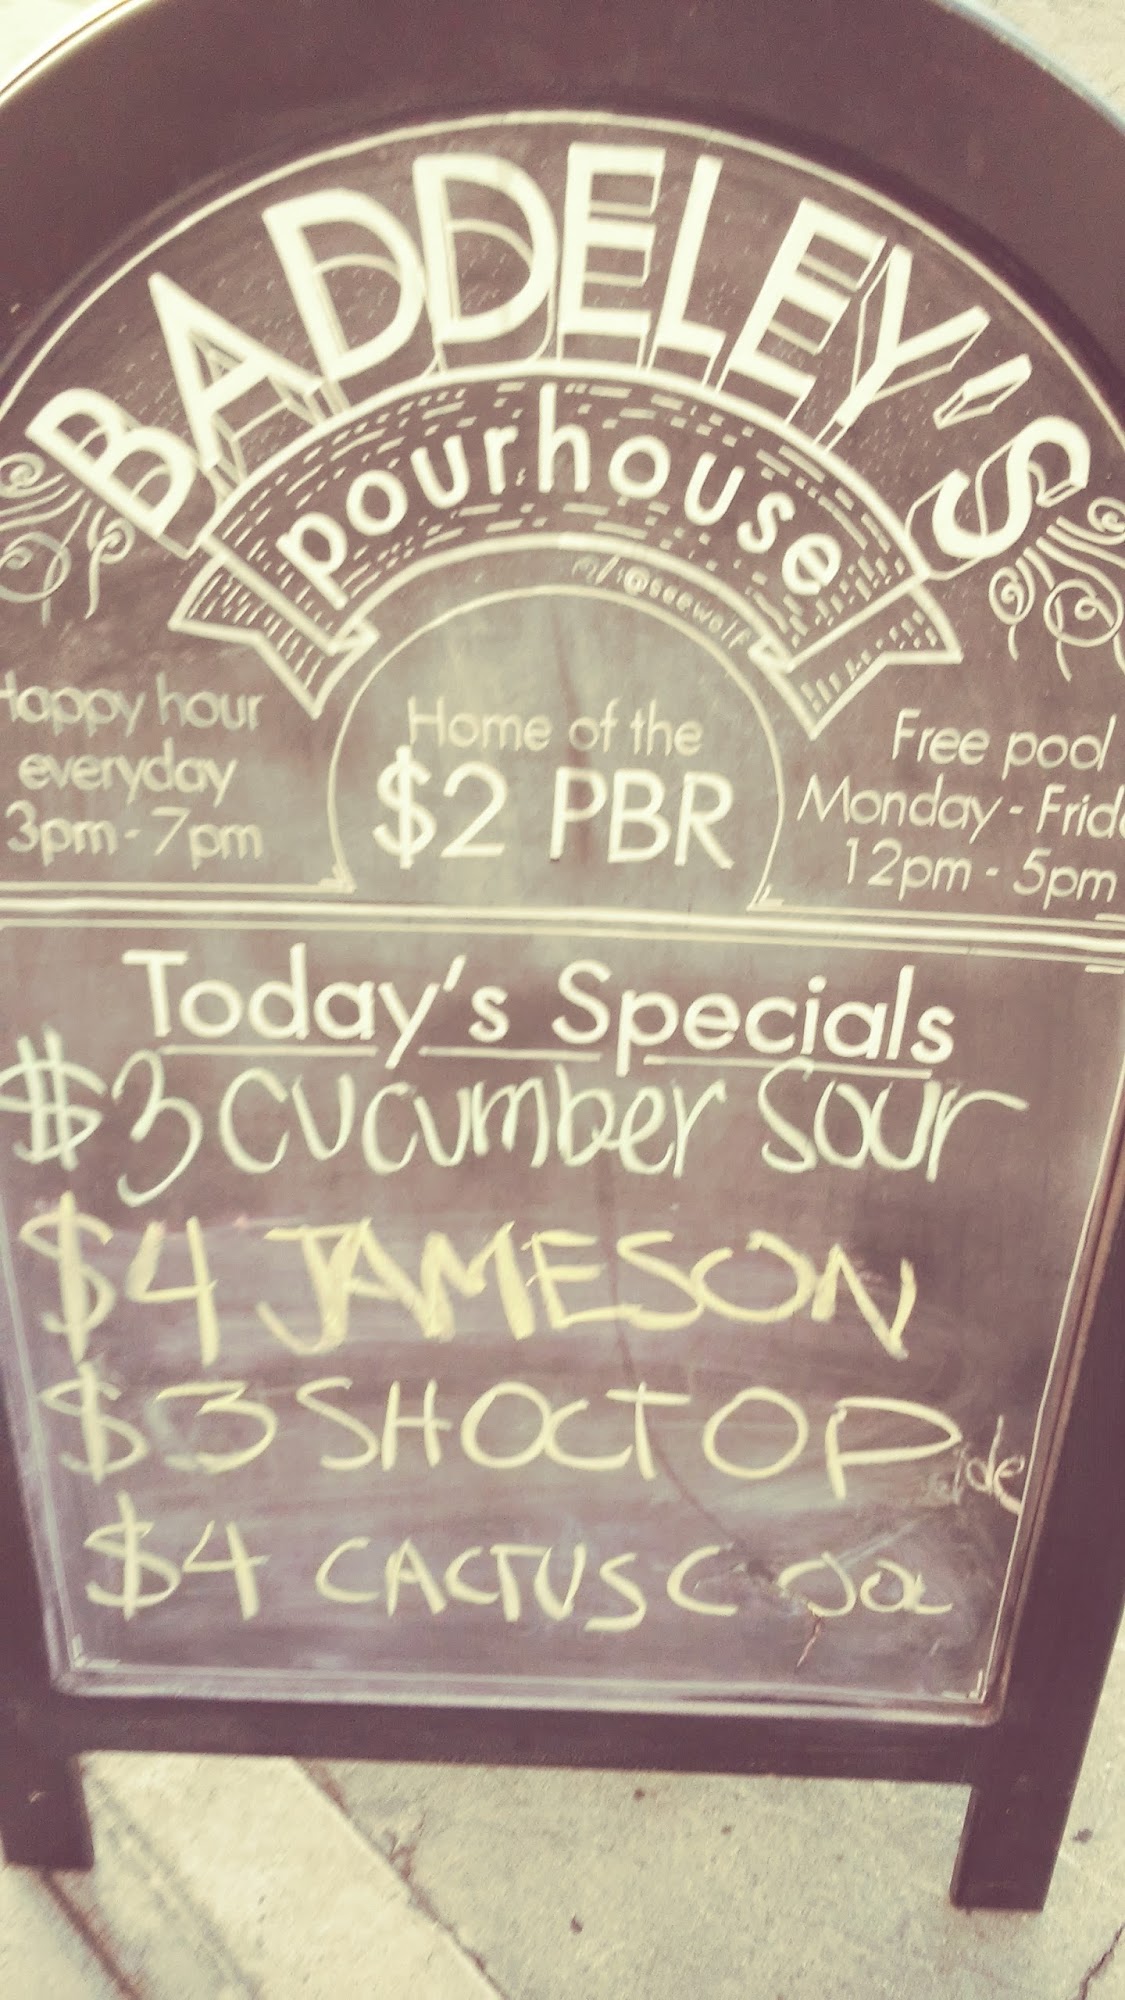 BADDELEY'S
pourhouse
@seewolf
Happy hour
everyday
3pm-7pm
Home of the
$2 PBR
Free pool
Monday - Frida
12pm - 5pm
Today's Specials
$3 CUCUMber Sour
$4 JAMESON
$3 SHOCTOP
ide
$4 CACTUS C